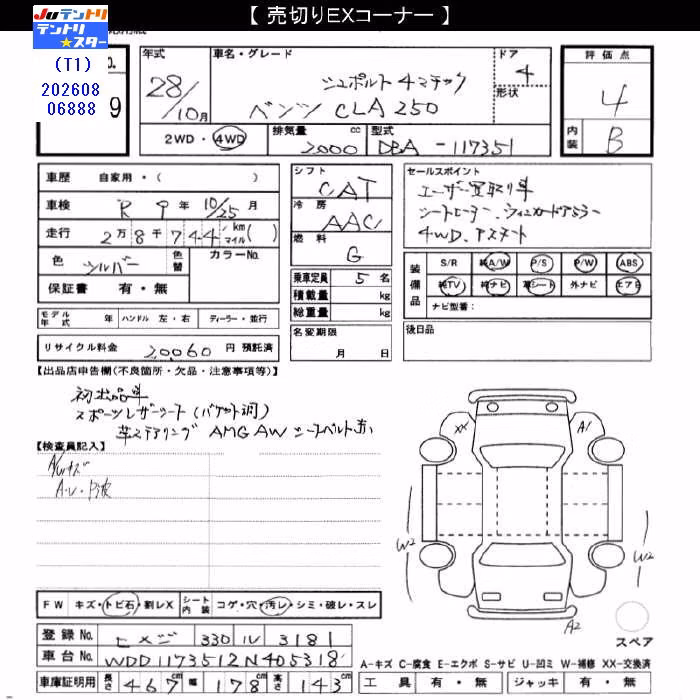 【 売切りEXコーナー 】
JUテントリ
テントリ
★スター
(T1)
202608
06888
9
年式 車名・グレード ドア 評価点
28/10月 シュポルト4マチック 4
ベンツ CLA250 形状 4
2WD・4WD 排気量 2000 cc 型式 DBA-117351 内装 B
車歴 自家用・( )
車検 R 9年 10/25月
走行 2万8千744 km マイル( )
色 シルバー 色替 カラーNo.
保証書 有・無
モデル年式 年 ハンドル 左・右 ディーラー・並行
リサイクル料金 20060 円 預託済
シフト CAT
冷房 AAC
燃料 G
乗車定員 5 名
積載量 kg
総重量 kg
名変期限
月 日
セールスポイント
ユーザー買取り車
シートヒーター
4WD
装備品 S/R 純A/W P/S P/W ABS
純TV 純ナビ 革シート 外ナビ エアB
ナビ型番:
後日品
【出品店申告欄(不良箇所・欠品・注意事項等)】
初出品車
スポーツレザーシート(バケット調)
革ステアリング AMG AW シートベルト赤
【検査員記入】
A/Wキズ
A・U・P波
XX A1
W2 W2
A2
スペア
FW キズ・トビ石・割レX シート内装 コゲ・穴・汚レ・シミ・破レ・スレ
登録No. ヒメジ 330 ル 3181
車台No. WDD1173512N405318
車庫証明用 長さ 467cm 幅 178cm 高さ 143cm
A-キズ C-腐食 E-エクボ S-サビ U-凹ミ W-補修 XX-交換済
工具 有・無 ジャッキ 有・無